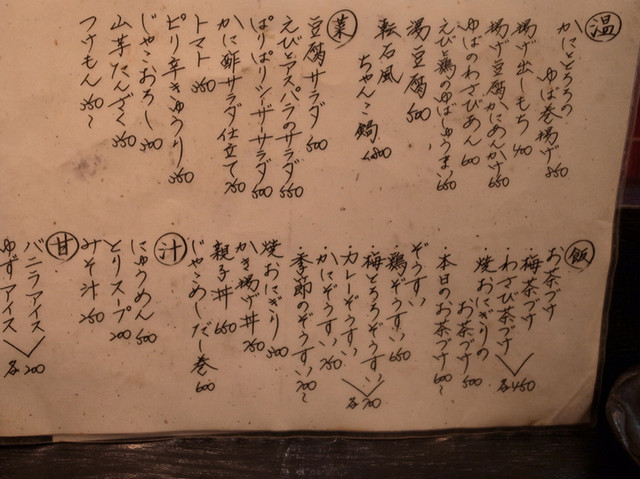 温
かにとろろの
ゆば巻揚げ 850
揚げ出しもち 400
揚げ豆腐かにあんかけ 650
ゆばのわさびあん 600
えびと鶏のゆばしゅうまい 650
湯豆腐 500
転石風
ちゃんこ鍋 1,800
菜
豆腐サラダ 500
えびとアスパラのサラダ 550
ぱりぱりシーザーサラダ 500
かに酢サラダ仕立て 750
トマト 350
ピリ辛きゅうり 350
じゃこおろし 300
山芋たんざく 350
つけもん 350〜
飯
お茶づけ
梅茶づけ
わさび茶づけ
各450
焼おにぎりの
お茶づけ 500
・本日のお茶づけ 600〜
ぞうすい
・鶏ぞうすい 650
・梅とろろぞうすい
・カレーぞうすい
各700
・かにぞうすい 750
・季節のぞうすい 700〜
焼おにぎり 300
かき揚げ丼 750
親子丼 650
じゃこめしだし巻 600
汁
にゅうめん 500
とりスープ 200
みそ汁 250
甘
バニラアイス
ゆずアイス
各200